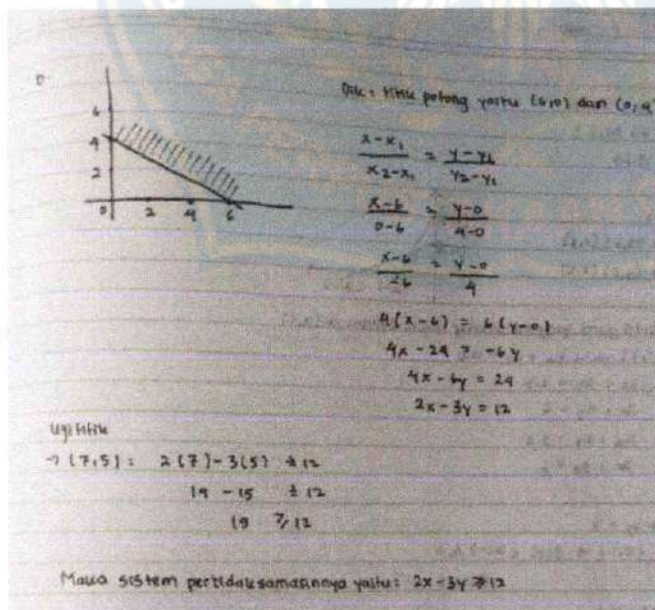 6
4
2
0 2 4 6
Dik : titik potong yaitu (6,0) dan (0,4)
x-x₁ / x₂-x₁ = y-y₁ / y₂-y₁
x-6 / 0-6 = y-0 / 4-0
x-6 / -6 = y-0 / 4
4(x-6) = 6(y-0)
4x - 24 = -6y
4x - 6y = 24
2x - 3y = 12
Uji titik
→ (7,5) = 2(7) - 3(5) ≠ 12
19 - 15 ± 12
19 ≥ 12
Maka sistem pertidaksamaannya yaitu : 2x - 3y ≥ 12